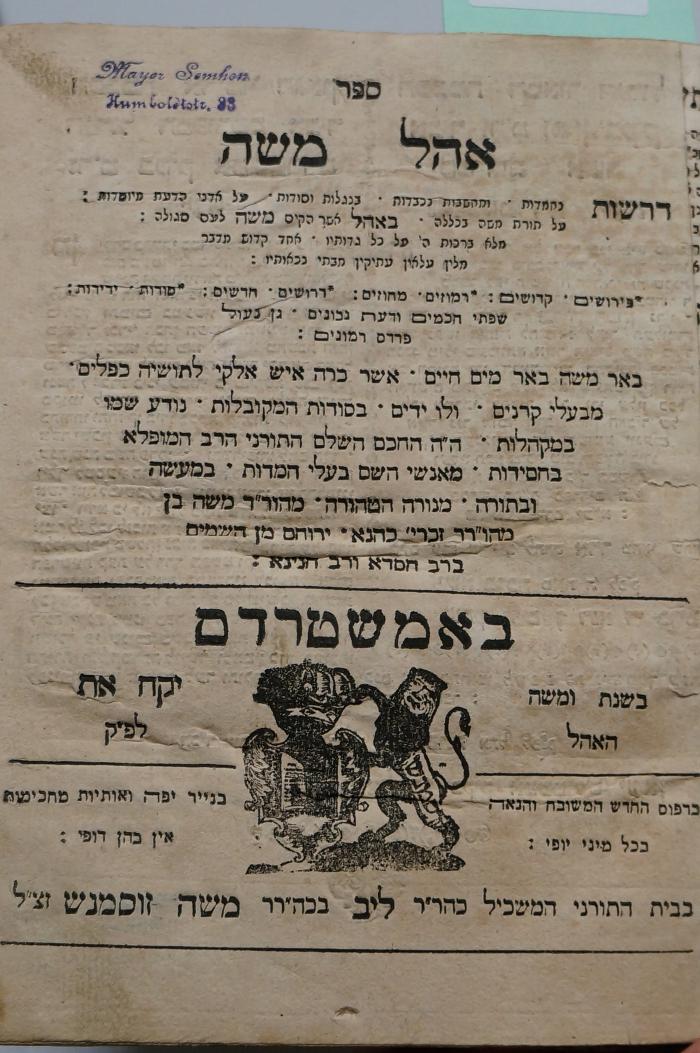 Mayer Semhon
Humboldtstr. 93
ספר
אהל משה
דרשות נחמדות · ומחשבות נכבדות · בנגלות וסודות · על אדני הדעת מיוסדות :
על תורת משה בכללה · באהל אשר הקים משה לעם סגולה :
מלא ברכות ה' על כל גדותיו · אחד קדוש מדבר
מלין עלאין עתיקין מבתי נכאותיו :
*פירושים · קדושים : *רמוזים · מחוזים : *דרושים · חדשים : *סודות · ידידות :
שפתי חכמים ודעת נבונים · גן נעול
פרדס רמונים :
באר משה באר מים חיים · אשר כרה איש אלקי לתושיה כפלים ·
מבעלי קרנים · ולו ידים · בסודות המקובלות · נודע שמו
במקהלות · ה"ה החכם השלם התורני הרב המופלא
בחסידות · מאנשי השם בעלי המדות · במעשה
ובתורה · מנורה הטהורה · מהור"ד משה בן
מהו"רר זכרי' כהנא · ירוחם מן השמים
ברב חסדא ורב חנינא :
באמשטרדם
בשנת ומשה יקח את
האהל לפ"ק
בדפוס החדש המשובח והנאה בנייר יפה ואותיות מחכימות
בכל מיני יופי : אין בהן דופי :
בבית התורני המשכיל כהר"ר ליב בכה"רר משה זוסמנש זצ"ל